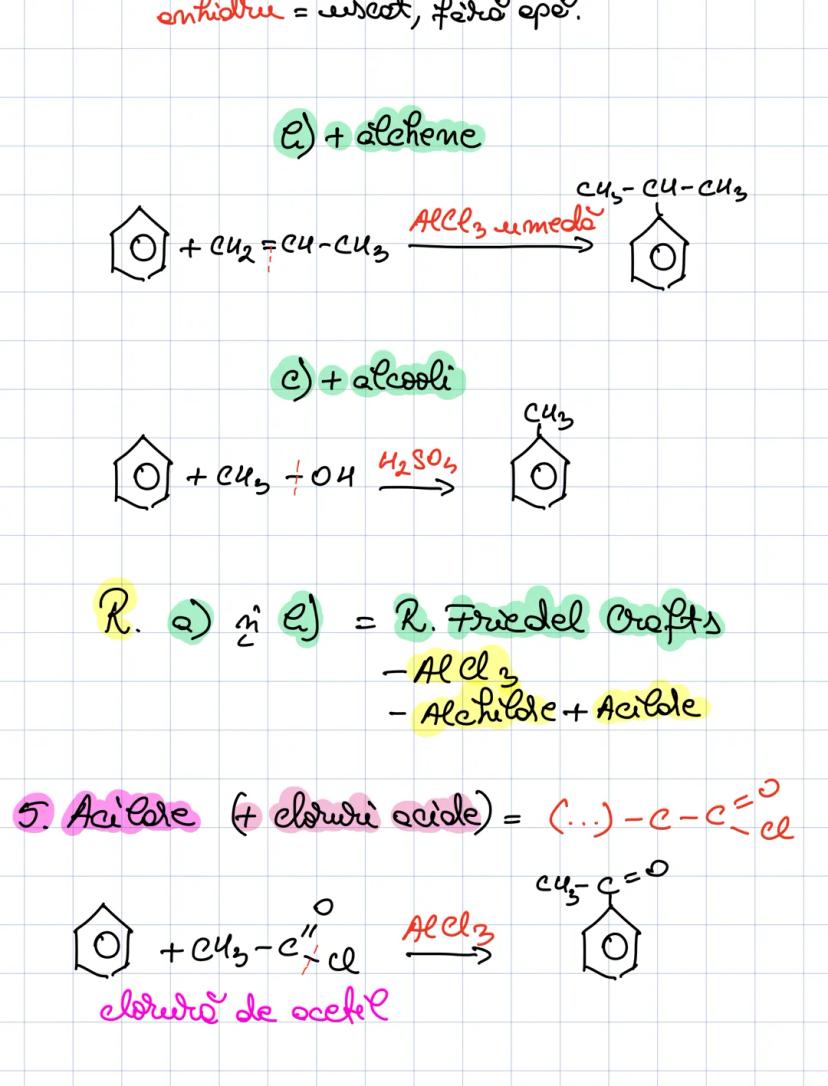 anhidru = uscat, fără apă.
b) + alchene
CH3-CH-CH3
+ CH2=CH-CH3 AlCl3 umedă
c) + alcooli
CH3
+ CH3-OH H2SO4
R. a) și b) = R. Friedel Crafts
-AlCl3
- Alchilare + Acilare
5. Acilare (+ cloruri acide) = (...)-C-C=O
Cl
CH3-C=O
O
+CH3-C-Cl AlCl3
clorură de acetil